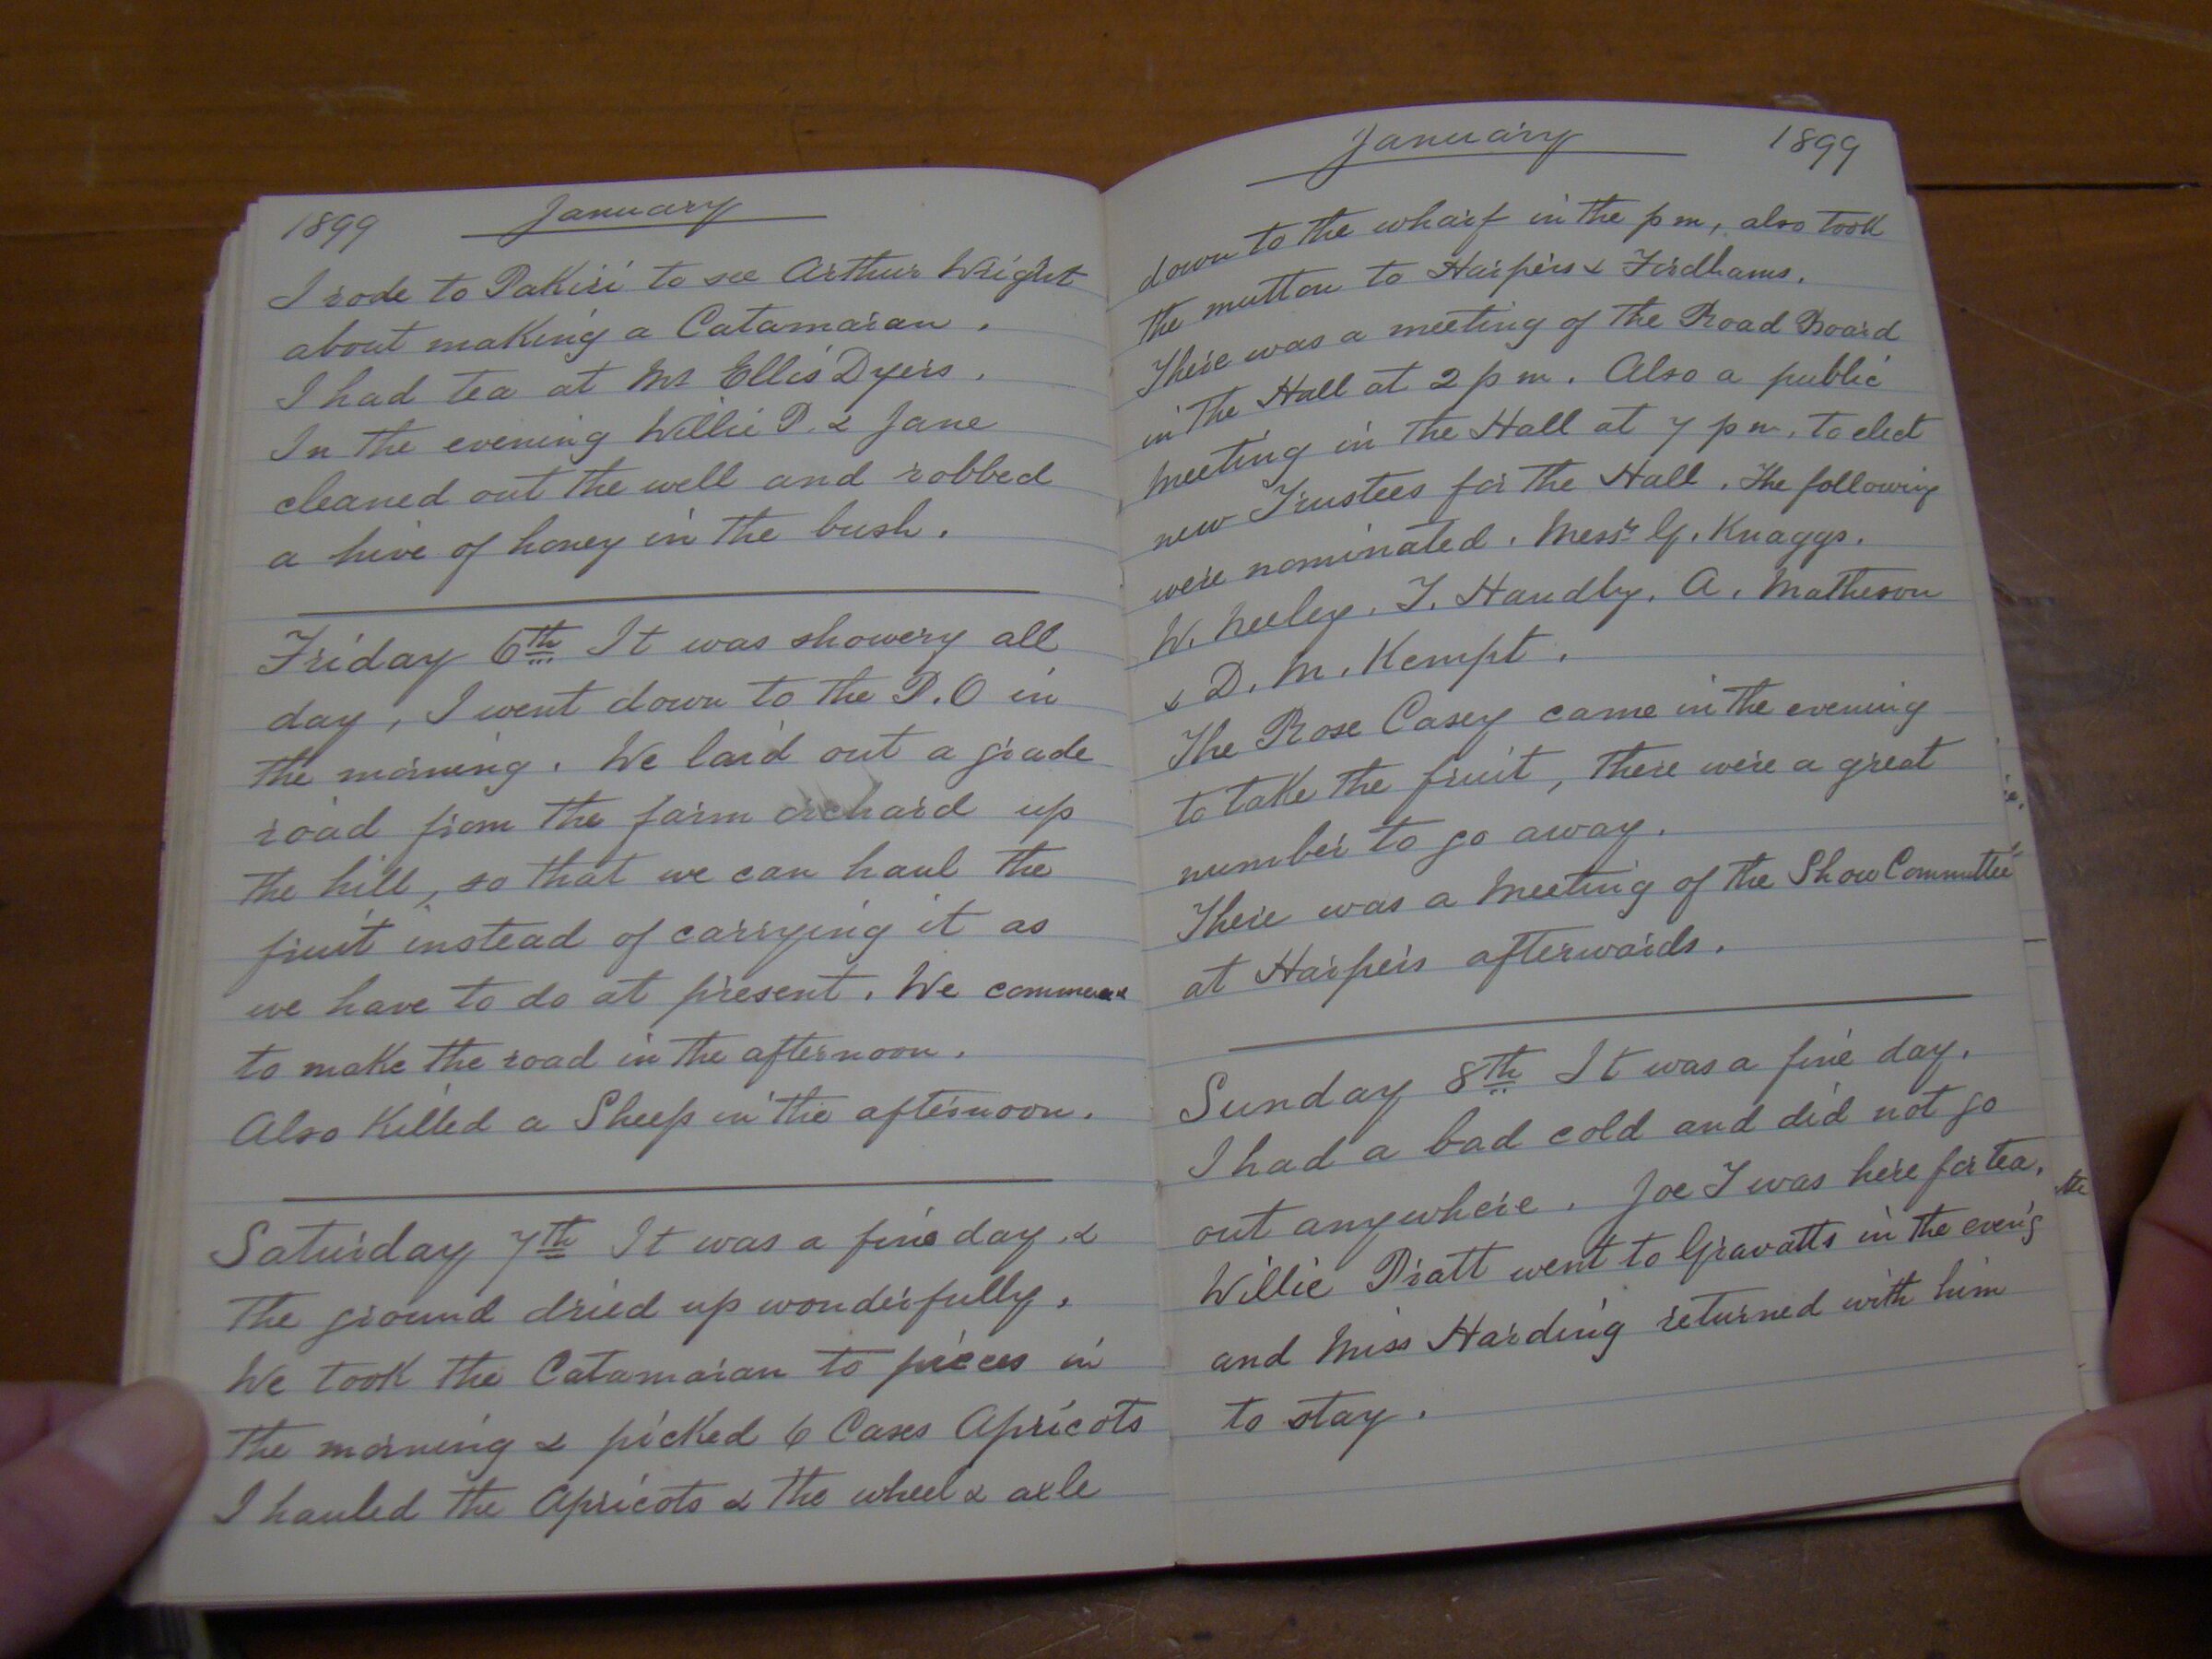 1899 January
I rode to Pakiri to see Arthur Wright
about making a Catamaran.
I had tea at Mr Ellis Dyers.
In the evening Willie P. & Jane
cleaned out the well and robbed
a hive of honey in the bush.
Friday 6th It was showery all
day, I went down to the P.O in
the morning. We laid out a grade
road from the farm orchard up
the hill, so that we can haul the
fruit instead of carrying it as
we have to do at present. We commence
to make the road in the afternoon.
Also Killed a Sheep in the afternoon.
Saturday 7th It was a fine day, &
the ground dried up wonderfully.
We took the Catamaran to pieces in
the morning & picked 6 Cases Apricots
I hauled the Apricots & the wheel & axle
January 1899
down to the wharf in the p m, also took
the mutton to Harpers & Firdhams.
There was a meeting of the Road Board
in the Hall at 2 p m. Also a public
meeting in the Hall at 7 p m, to elect
new Trustees for the Hall. The following
were nominated. Messrs G. Knaggs.
W. Neeley. T. Handby. A. Matheson
& D. M. Kempt.
The Rose Casey came in the evening
to take the fruit, there were a great
number to go away.
There was a Meeting of the Show Committee
at Harpers afterwards.
Sunday 8th It was a fine day.
I had a bad cold and did not go
out anywhere. Joe T was here for tea.
Willie Pratt went to Gravatts in the eveng
and Miss Harding returned with him
to stay.